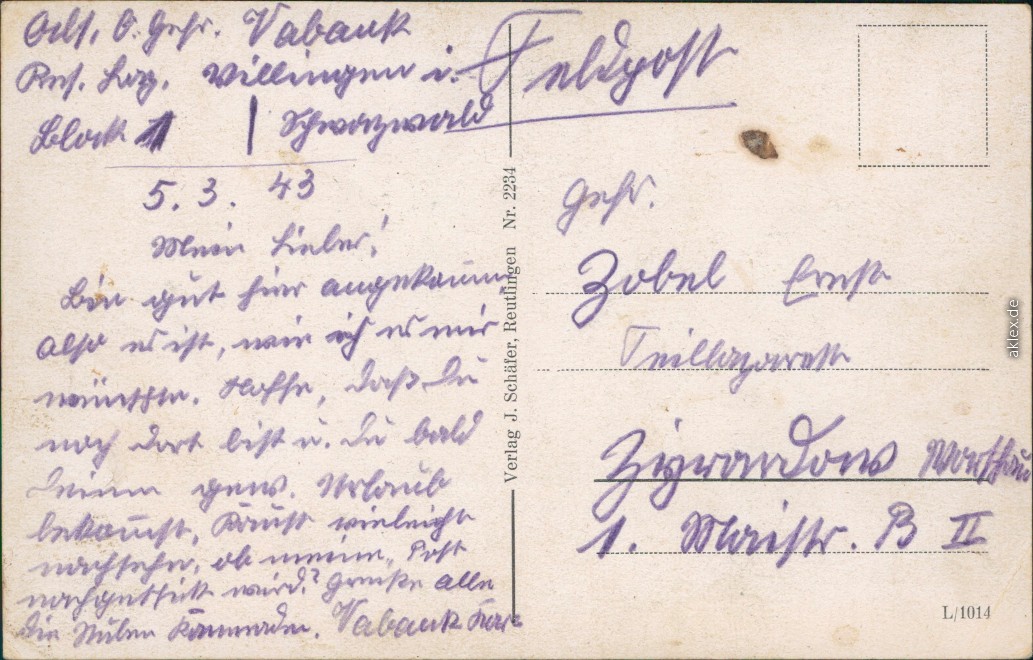 Abs. O. Gefr. Vabank
Res. Laz. Villingen i.
Block 1 | Schwarzwald
5. 3. 43
Mein Lieber!
Bin gut hier angekommen
also es ist, wie ich es mir
wünschte. Hoffe, daß Du
noch dort bist u. Du bald
Deinen gew. Urlaub
bekommst. Kannst vieleicht
nachsehen, ob meine Post
nachgeschickt wird? Grüße alle
die Kameraden. Vabank
Feldpost
Gefr.
Zobel Ernst
Teillazarett
Zyrardow Warschau
1. Maistr. B II
Verlag J. Schäfer, Reutlingen Nr. 2234
L/1014
aklex.de